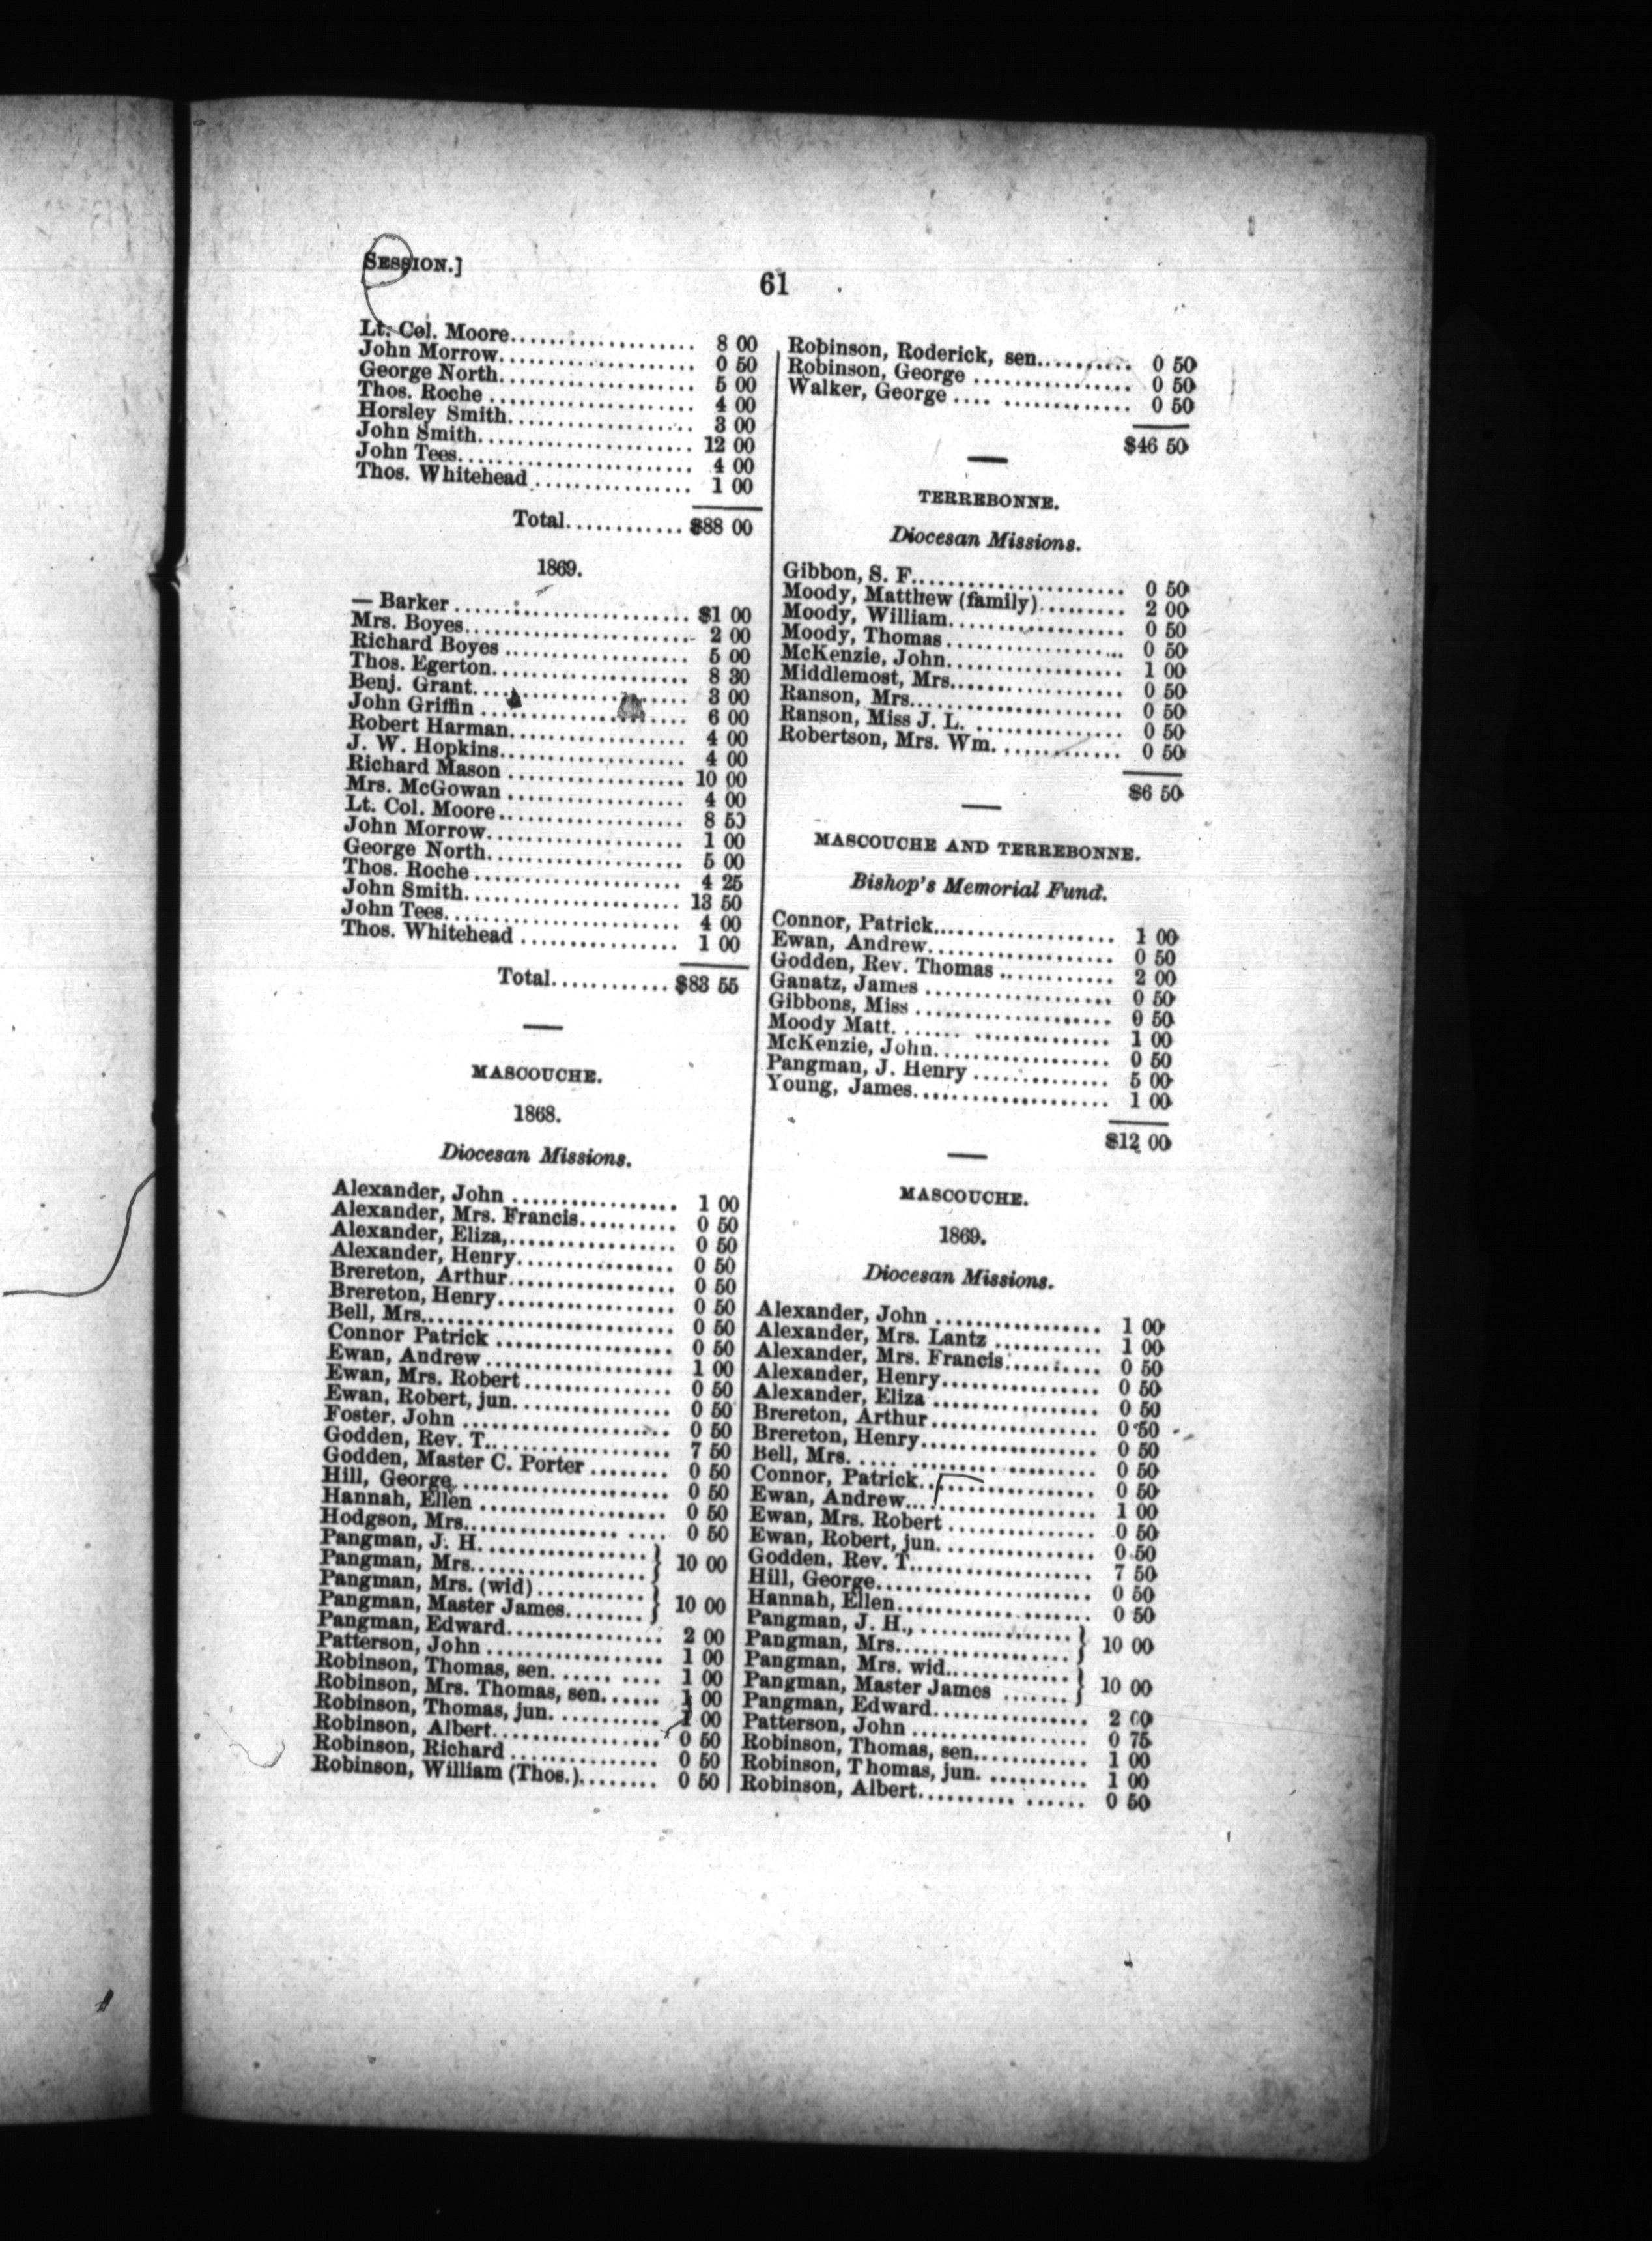 SESSION.]
61
Lt. Col. Moore.................... 8 00
John Morrow.................... 0 50
George North.................... 5 00
Thos. Roche .................... 4 00
Horsley Smith.................... 3 00
John Smith.................... 12 00
John Tees.................... 4 00
Thos. Whitehead ................ 1 00
Total............ $88 00
1869.
— Barker .................... $1 00
Mrs. Boyes.................... 2 00
Richard Boyes .................... 5 00
Thos. Egerton.................... 8 30
Benj. Grant.................... 3 00
John Griffin .................... 6 00
Robert Harman.................. 4 00
J. W. Hopkins.................... 4 00
Richard Mason .................. 10 00
Mrs. McGowan .................. 4 00
Lt. Col. Moore.................... 8 50
John Morrow.................... 1 00
George North.................... 5 00
Thos. Roche .................... 4 25
John Smith.................... 13 50
John Tees.................... 4 00
Thos. Whitehead ................ 1 00
Total............ $83 55
MASCOUCHE.
1868.
Diocesan Missions.
Alexander, John ................ 1 00
Alexander, Mrs. Francis.......... 0 50
Alexander, Eliza,................. 0 50
Alexander, Henry................ 0 50
Brereton, Arthur................. 0 50
Brereton, Henry.................. 0 50
Bell, Mrs......................... 0 50
Connor Patrick .................. 0 50
Ewan, Andrew ................... 1 00
Ewan, Mrs. Robert............... 0 50
Ewan, Robert, jun................ 0 50
Foster, John .................... 0 50
Godden, Rev. T................... 7 50
Godden, Master C. Porter ........ 0 50
Hill, George..................... 0 50
Hannah, Ellen .................. 0 50
Hodgson, Mrs.................... 0 50
Pangman, J. H. ................. }
Pangman, Mrs.................. } 10 00
Pangman, Mrs. (wid)........... }
Pangman, Master James........ } 10 00
Pangman, Edward............... 2 00
Patterson, John .................. 1 00
Robinson, Thomas, sen. ...... .... 1 00
Robinson, Mrs. Thomas, sen...... 1 00
Robinson, Thomas, jun. .......... 1 00
Robinson, Albert................. 0 50
Robinson, Richard ............... 0 50
Robinson, William (Thos.)........ 0 50
Robinson, Roderick, sen.......... 0 50
Robinson, George ................ 0 50
Walker, George .... ............. 0 50
$46 50
TERREBONNE.
Diocesan Missions.
Gibbon, S. F..................... 0 50
Moody, Matthew (family)......... 2 00
Moody, William.................. 0 50
Moody, Thomas .................. 0 50
McKenzie, John.................. 1 00
Middlemost, Mrs................. 0 50
Ranson, Mrs..................... 0 50
Ranson, Miss J. L. ............... 0 50
Robertson, Mrs. Wm. ............ 0 50
$6 50
MASCOUCHE AND TERREBONNE.
Bishop's Memorial Fund.
Connor, Patrick.................. 1 00
Ewan, Andrew................... 0 50
Godden, Rev. Thomas ............ 2 00
Ganatz, James ................... 0 50
Gibbons, Miss .................... 0 50
Moody Matt. ...... .............. 1 00
McKenzie, John.................. 0 50
Pangman, J. Henry .............. 5 00
Young, James.................... 1 00
$12 00
MASCOUCHE.
1869.
Diocesan Missions.
Alexander, John ................. 1 00
Alexander, Mrs. Lantz ........... 1 00
Alexander, Mrs. Francis.......... 0 50
Alexander, Henry................ 0 50
Alexander, Eliza ................. 0 50
Brereton, Arthur................. 0 50
Brereton, Henry.................. 0 50
Bell, Mrs. .... .................. 0 50
Connor, Patrick.................. 0 50
Ewan, Andrew................... 1 00
Ewan, Mrs. Robert ............... 0 50
Ewan, Robert, jun. ............... 0 50
Godden, Rev. T................... 7 50
Hill, George..................... 0 50
Hannah, Ellen................... 0 50
Pangman, J. H., ............... }
Pangman, Mrs.................. } 10 00
Pangman, Mrs. wid............. }
Pangman, Master James ....... } 10 00
Pangman, Edward............... 2 00
Patterson, John .................. 0 75
Robinson, Thomas, sen........... 1 00
Robinson, Thomas, jun. .......... 1 00
Robinson, Albert.......... ...... 0 50